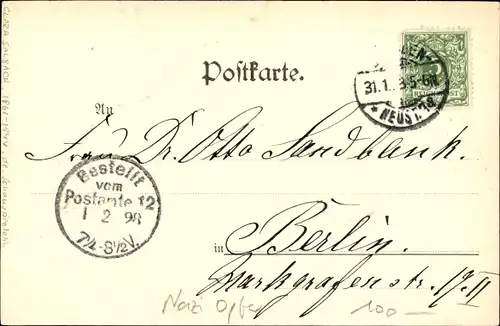 Postkarte.
31.1. 5-6N
* NEUST. 1a
An
Frau Dr. Otto Sandbank.
Bestellt
vom
Postamte 12
1 2 98
7¼-8½V.
in Berlin.
Markgrafenstr. 17 II
Nazi Opfer
100-